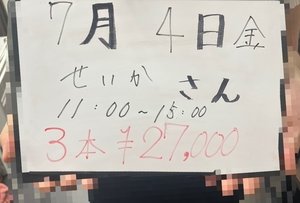 7月4日金
せいかさん
11:00~15:00
3本¥27,000